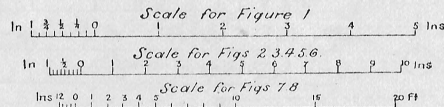 Scale for Figure 1
In 1 ¾ ½ ¼ 0 1 2 3 4 5 Ins
Scale for Figs 2.3.4.5.6.
In 1 0 1 2 3 4 5 6 7 8 9 10 Ins
Scale for Figs 7.8
Ins 12 0 1 2 3 4 5 10 15 20 Ft